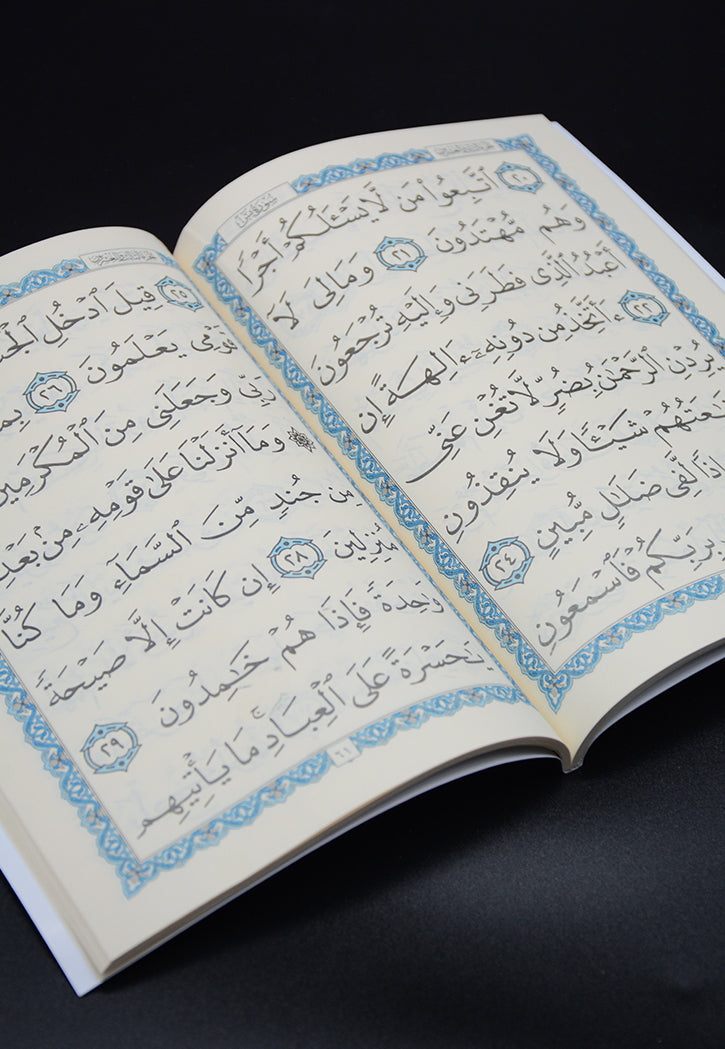 سورة يس
٢٠ ٱتَّبِعُوا۟ مَن لَّا يَسْـَٔلُكُمْ أَجْرًا
وَهُم مُّهْتَدُونَ ٢١ وَمَالِىَ لَا
أَعْبُدُ ٱلَّذِى فَطَرَنِى وَإِلَيْهِ تُرْجَعُونَ
٢٢ ءَأَتَّخِذُ مِن دُونِهِۦٓ ءَالِهَةً إِن
يُرِدْنِ ٱلرَّحْمَـٰنُ بِضُرٍّ لَّا تُغْنِ عَنِّى
شَيْـًٔا وَلَا يُنقِذُونِ
لَّفِى ضَلَـٰلٍ مُّبِينٍ ٢٤
بِرَبِّكُمْ فَٱسْمَعُونِ
٢٥ قِيلَ ٱدْخُلِ
قَوْمِى يَعْلَمُونَ ٢٦
رَبِّى وَجَعَلَنِى مِنَ ٱلْمُكْرَمِينَ
وَمَآ أَنزَلْنَا عَلَىٰ قَوْمِهِۦ مِنۢ بَعْدِ
مِن جُندٍ مِّنَ ٱلسَّمَآءِ وَمَا كُنَّا
مُنزِلِينَ ٢٨ إِن كَانَتْ إِلَّا صَيْحَةً
وَٰحِدَةً فَإِذَا هُمْ خَـٰمِدُونَ ٢٩
يَـٰحَسْرَةً عَلَى ٱلْعِبَادِ ۚ مَا يَأْتِيهِم
٦١